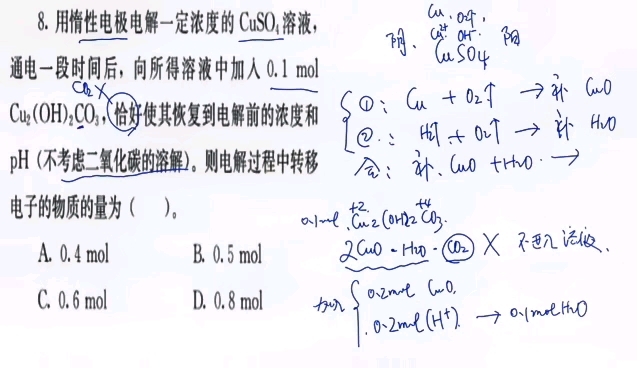 8. 用惰性电极电解一定浓度的 CuSO₄ 溶液，
通电一段时间后，向所得溶液中加入 0.1 mol
CO₂ ×
Cu₂(OH)₂CO₃，恰好使其恢复到电解前的浓度和
pH（不考虑二氧化碳的溶解）。则电解过程中转移
电子的物质的量为（　）。
A. 0.4 mol　B. 0.5 mol
C. 0.6 mol　D. 0.8 mol
Cu. O₂↑.
阴. Cu²⁺ OH⁻ 阳
CuSO₄
①: Cu + O₂↑ → 补 CuO
②: H₂↑ + O₂↑ → 补 H₂O
补. CuO + H₂O →
+2 +4
0.1mol. Cu₂(OH)₂CO₃.
2CuO·H₂O·CO₂ × 不进入溶液.
0.2mol CuO.
0.2mol (H⁺). → 0.1mol H₂O